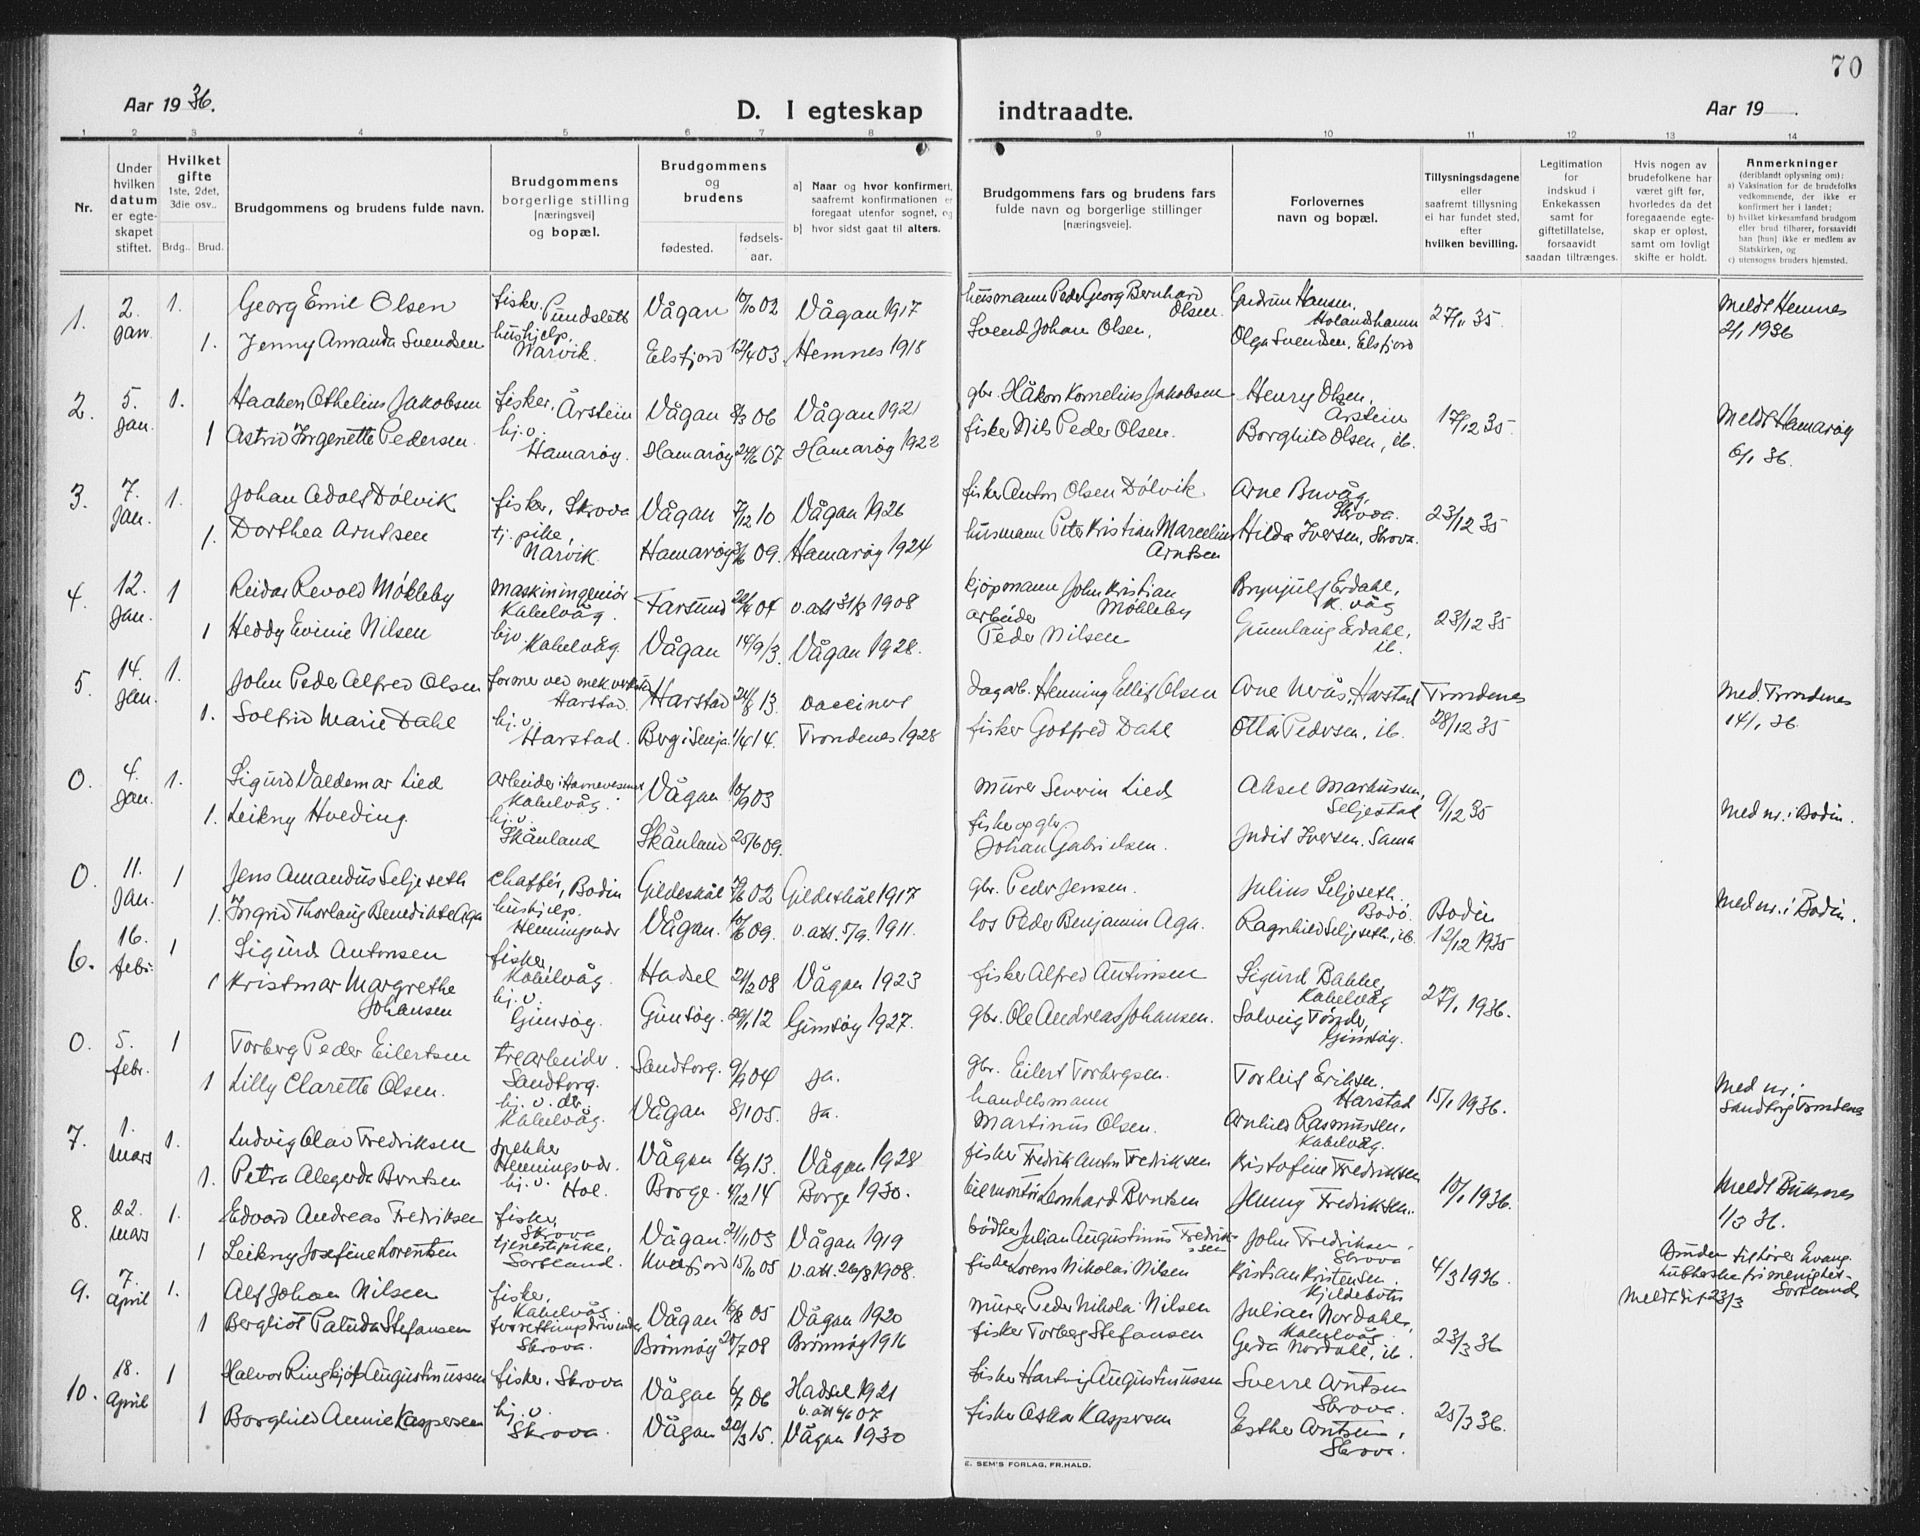 70
Aar 1936.
D. I egteskap indtraadte.
Aar 19
1 2 3 4 5 6 7 8 9 10 11 12 13 14
Nr.
Under hvilken datum er egteskapet stiftet.
Hvilket gifte
1ste, 2det, 3die osv..
Brdg.. Brud.
Brudgommens og brudens fulde navn.
Brudgommens borgerlige stilling [næringsvei] og bopæl.
Brudgommens og brudens
fødested.
fødselsaar.
a) Naar og hvor konfirmert, saafremt konfirmationen er foregaat utenfor sognet, og
b) hvor sidst gaat til alters.
Brudgommens fars og brudens fars fulde navn og borgerlige stillinger [næringsveie].
Forlovernes navn og bopæl.
Tillysningsdagene eller saafremt tillysning ei har fundet sted, efter hvilken bevilling.
Legitimation for indskud i Enkekassen samt for giftetillatelse, forsaavidt saadan tiltrænges.
Hvis nogen av brudefolkene har været gift før, hvorledes da det foregaaende egteskap er opløst, samt om lovligt skifte er holdt.
Anmerkninger
(deriblandt oplysning om):
a) Vaksination for de brudefolks vedkommende, der ikke er konfirmert her i landet;
b) hvilket kirkesamfund brudgom eller brud tilhører, forsaavidt han [hun] ikke er medlem av Statskirken, og
c) utensogns bruders hjemsted.
1. 2. jan. 1. Georg Emil Olsen fisker, Pundslett Vågan 10/10 02 Vågan 1917 husmann Peder Georg Bernhard Olsen Gudrun Hansen, Holandshamn 27/11 35 Meldt Hemnes 2/1 1936
1. Jenny Amanda Svendsen hushjelp, Narvik. Elsfjord 12/4 03 Hemnes 1918 Svend Johan Olsen, Olga Svendsen, Elsfjord
2. 5. jan. 1. Haaken Othelius Jakobsen fisker, Årstein Vågan 8/3 06 Vågan 1921 gbr. Håkon Kornelius Jakobsen Henry Olsen, Årstein 17/12 35. Meldt Hamarøy 6/1 36.
1 Astrid Jorgenette Pedersen hj.v. Hamarøy. Hamarøy 24/6 07 Hamarøy 1922 fisker Nils Peder Olsen. Borghild Olsen, ib.
3. 7. jan. 1. Johan Adolf Dølvik fisker, Skrova Vågan 7/12 10 Vågan 1926 fisker Anton Olsen Dølvik Arne Buvåg, Skrova. 23/12 35
1. Dorthea Arntsen tj. pike, Narvik Hamarøy 3/6 09. Hamarøy 1924 husmann Peter Kristian Marcelius Arntsen Hilda Iversen, Skrova.
4. 12. jan. 1 Reidar Revold Møkleby maskiningeniør Kabelvåg. Farsund 22/4 04 v. att 31/8 1908 kjøpmann John Kristian Møkleby Brynjulf Erdahl, K. våg 23/12 35
1 Heddy Evinie Nilsen hjv. Kabelvåg Vågan 14/9 13. Vågan 1928. arbeider Peder Nilsen Gunnlaug Erdahl, ib.
5. 14. jan. 1. John Peder Alfred Olsen former ved mek. verksted Harstad. Harstad 24/8 13. vaccinert dagarb. Henning Ellif Olsen Arne Nerås, Harstad Trondenes 28/12 35 Med. Trondenes 14/1 36.
1. Solfrid Marie Dahl hj.v. Harstad. Berg i Senja. 1/4 14. Trondenes 1928 fisker Gotfred Dahl Otto Pedersen, ib.
0. 4. jan. 1. Sigurd Valdemar Lied arbeider i Havnevesenet Kabelvåg. Vågan 10/9 03 murer Severin Lied Aksel Markussen, Seljestad 9/12 35 Med nr. i Bodin.
1. Leikny Hveding. hj.v. Skånland Skånland 25/6 09. fisker og gbr. Johan Gabrielsen. Judit Iversen, Sama
0. 11. jan. 1 Jens Amandus Seljeseth chaffør, Bodin Gildeskål 02 Gildeskål 1917 gbr. Peder Jensen. Julius Seljeseth, Bodø. Bodin 12/12 1935 Med nr. i Bodin.
1. Ingrid Thorlaug Benedikte Aga hushjelp. Henningsvær Vågan. 10/6 09. v. att. 5/9. 1911. los Peder Benjamin Aga. Ragnhild Seljeseth, ib.
6. 16. febr. 1 Sigurd Antonsen fisker, Kabelvåg. Hadsel 21/2 08 Vågan 1923 fisker Alfred Antonsen Sigurd Bakke, Kabelvåg 27/1 1936.
1 Kristmar Margrethe Johansen hj.v. Gimsøy. Gimsøy. 29/1 12 Gimsøy 1927. gbr. Ole Andreas Johansen. Solveig Tønder, Gimsøy.
0. 5. febr. 1 Torberg Peder Eilertsen trearbeider Sandtorg. Sandtorg. 9/9 04 ja. gbr. Eilert Torbergsen. Torleif Eriksen, Harstad 15/1 1936. Med nr. i Sandtorg Trondenes
1 Lilly Clarette Olsen. hj. v. Kabelvåg. Vågan 8/1 05 ja. handelsmann Martinus Olsen. Arnhild Rasmussen, Kabelvåg.
7. 1. mars 1. Ludvig Olav Fredriksen snekker Henningsvær. Vågan 16/9 13. Vågan 1928 fisker Fredrik Anton Fredriksen Kristofine Fredriksen 10/1 1936. Meldt Buksnes 1/3 36.
1. Petra Alegerda Berntsen hj.v. Hol. Borge. 4/12 14 Borge 1930. bilmontør Leonhard Berntsen Jenny Fredriksen.
8. 22. mars 1. Edvard Andreas Fredriksen fisker, Skrova Vågan. 21/1 03 Vågan 1919 bødker Julian Augustinus Fredriksen John Fredriksen, Skrova 4/3 1936 Bruden tilhører Evang. lutherske frimenighet Sortland
1 Leikny Josefine Lorentsen tjenestepike, Sortland. Kvæfjord 15/10 05 v. att. 26/8 1908. fisker Lorens Nikolai Nilsen Kristian Kristensen. Kjeldebotn Meldt dit 23/3
9. 7. april 1. Alf Johan Nilsen fisker, Kabelvåg. Vågan 16/8 05 Vågan 1920 murer Peder Nikolai Nilsen Julian Nordahl, Kabelvåg. 23/3 36
1 Bergliot Paluda Stefansen forretningsdrivende Skrova. Brønnøy 20/7 08 Brønnøy 1916 fisker Torberg Stefansen Gerda Nordahl, ib.
10. 18. April 1 Halvor Ringkjøb Augustinussen fisker, Skrova Vågan 6/7 06 Hadsel 1921 fisker Hartvig Augustinussen Sverre Arntsen Skrova. 25/3 36.
1 Borghild Annie Kaspersen hj.v. Skrova. Vågan 20/3 15. v. att 6/6 07 Vågan 1930 fisker Oskar Kaspersen Esther Arntsen, Skrova.
E. SEM'S FORLAG, FR.HALD.